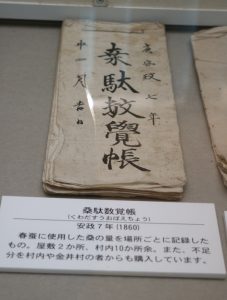 安政七年
桒駄数覺帳
申四月吉日
桑駄数覚帳
(くわだすうおぼえちょう)
安政7年(1860)
春蚕に使用した桑の量を場所ごとに記録した
もの。屋敷2か所、村内10か所余。また、不足
分を村内や金井村の者からも購入しています。